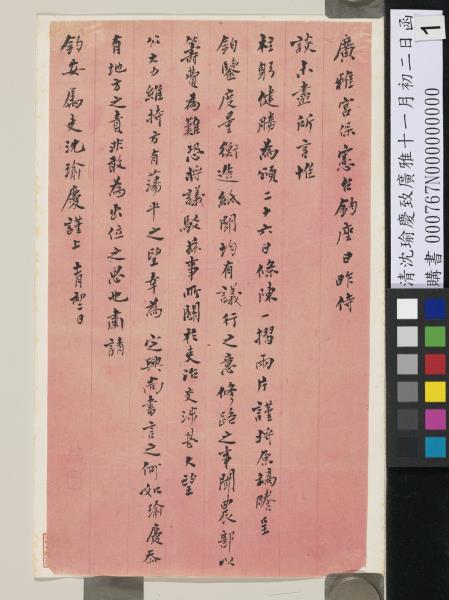 廣雅宮保憲台鈞座日昨侍
談未盡所言惟
柱躬健勝為頌二十六日條陳一摺兩片謹將原稿謄呈
鈞鑒度量衡造紙聞均有議行之意修路之事聞農部以
籌費為難恐將議駁茲事所關於吏治交涉甚大望
公大力維持方有蕩平之望幸為定興尚書言之何如瑜慶忝
有地方之責非敢為出位之思也肅請
鈞安屬吏沈瑜慶謹上十一月初二日
清沈瑜慶致廣雅十一月初二日函
購書000767N000000000
1